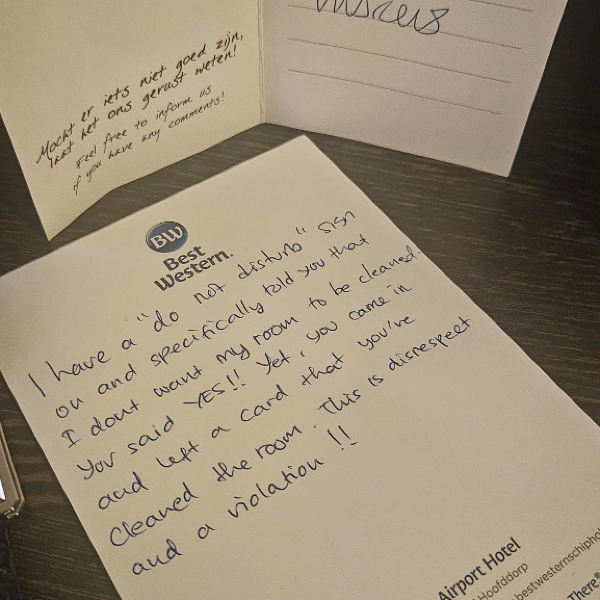 Mocht er iets niet goed zijn,
laat het ons gerust weten!
Feel free to inform us
if you have any comments!
BW
Best
Western.
I have a "do not disturb" sign
on and specifically told you that
I dont want my room to be cleaned.
You said YES!! Yet, you came in
and left a card that you've
cleaned the room. This is disrespect
and a violation!!
Airport Hotel
Hoofddorp
There®